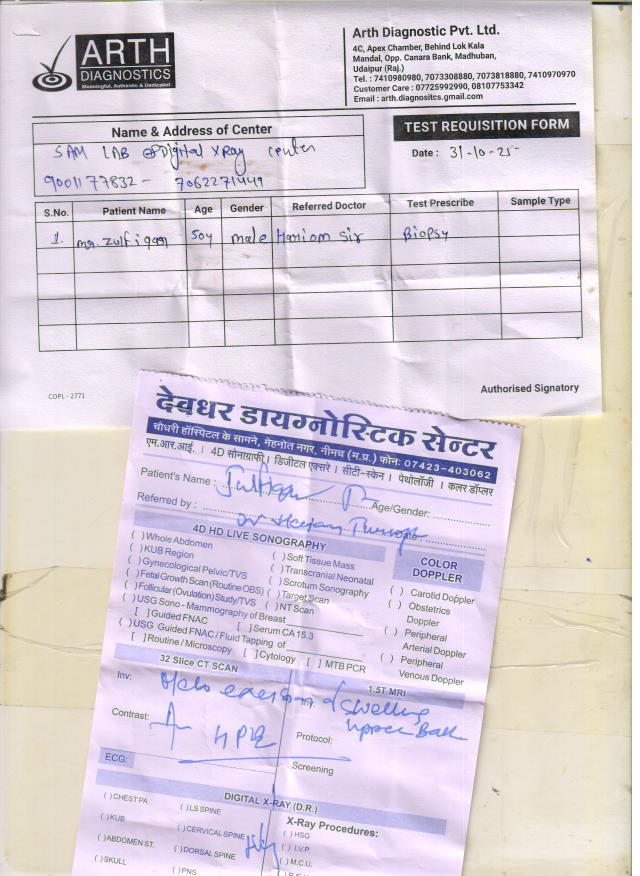 ARTH
DIAGNOSTICS
Meaningful, Authentic & Dedicated
Arth Diagnostic Pvt. Ltd.
4C, Apex Chamber, Behind Lok Kala
Mandal, Opp. Canara Bank, Madhuban,
Udaipur (Raj.)
Tel. : 7410980980, 7073308880, 7073818880, 7410970970
Customer Care : 07725992990, 08107753342
Email : arth.diagnositcs.gmail.com
Name & Address of Center
SAM LAB Digital XRay center
9001177832 - 7062271449
TEST REQUISITION FORM
Date : 31-10-25
S.No. Patient Name Age Gender Referred Doctor Test Prescribe Sample Type
1. mr. Zulfiqar 50y male Hariom Sir Biopsy
COPL - 2771
Authorised Signatory
देवधर डायग्नोस्टिक सेन्टर
चौधरी हॉस्पिटल के सामने, मेहनोत नगर, नीमच (म.प्र.) फोन: 07423-403062
एम.आर.आई. । 4D सोनाग्राफी । डिजीटल एक्सरे । सीटी-स्केन । पेथोलॉजी । कलर डॉप्लर
Patient's Name : Age/Gender:
Referred by : Date :
4D HD LIVE SONOGRAPHY
( ) Whole Abdomen
( ) KUB Region
( ) Gynecological Pelvic/TVS
( ) Fetal Growth Scan (Routine OBS)
( ) Follicular (Ovulation) Study/TVS
( ) Soft Tissue Mass
( ) Transcranial Neonatal
( ) Scrotum Sonography
( ) Target Scan
( ) NT Scan
( ) USG Sono - Mammography of Breast
[ ] Guided FNAC [ ] Serum CA 15.3
( ) USG Guided FNAC / Fluid Tapping of
[ ] Routine / Microscopy [ ] Cytology [ ] MTB PCR
COLOR
DOPPLER
( ) Carotid Doppler
( ) Obstetrics
Doppler
( ) Peripheral
Arterial Doppler
( ) Peripheral
Venous Doppler
32 Slice CT SCAN
1.5T MRI
Inv: swelling
upper
Contrast: HPE
Protocol:
Screening
ECG:
DIGITAL X-RAY (D.R.)
( ) CHEST PA.
( ) KUB
( ) ABDOMEN ST.
( ) SKULL
( ) LS SPINE
( ) CERVICAL SPINE
( ) DORSAL SPINE
( ) PNS
X-Ray Procedures:
( ) HSG
( ) I.V.P
( ) M.C.U.